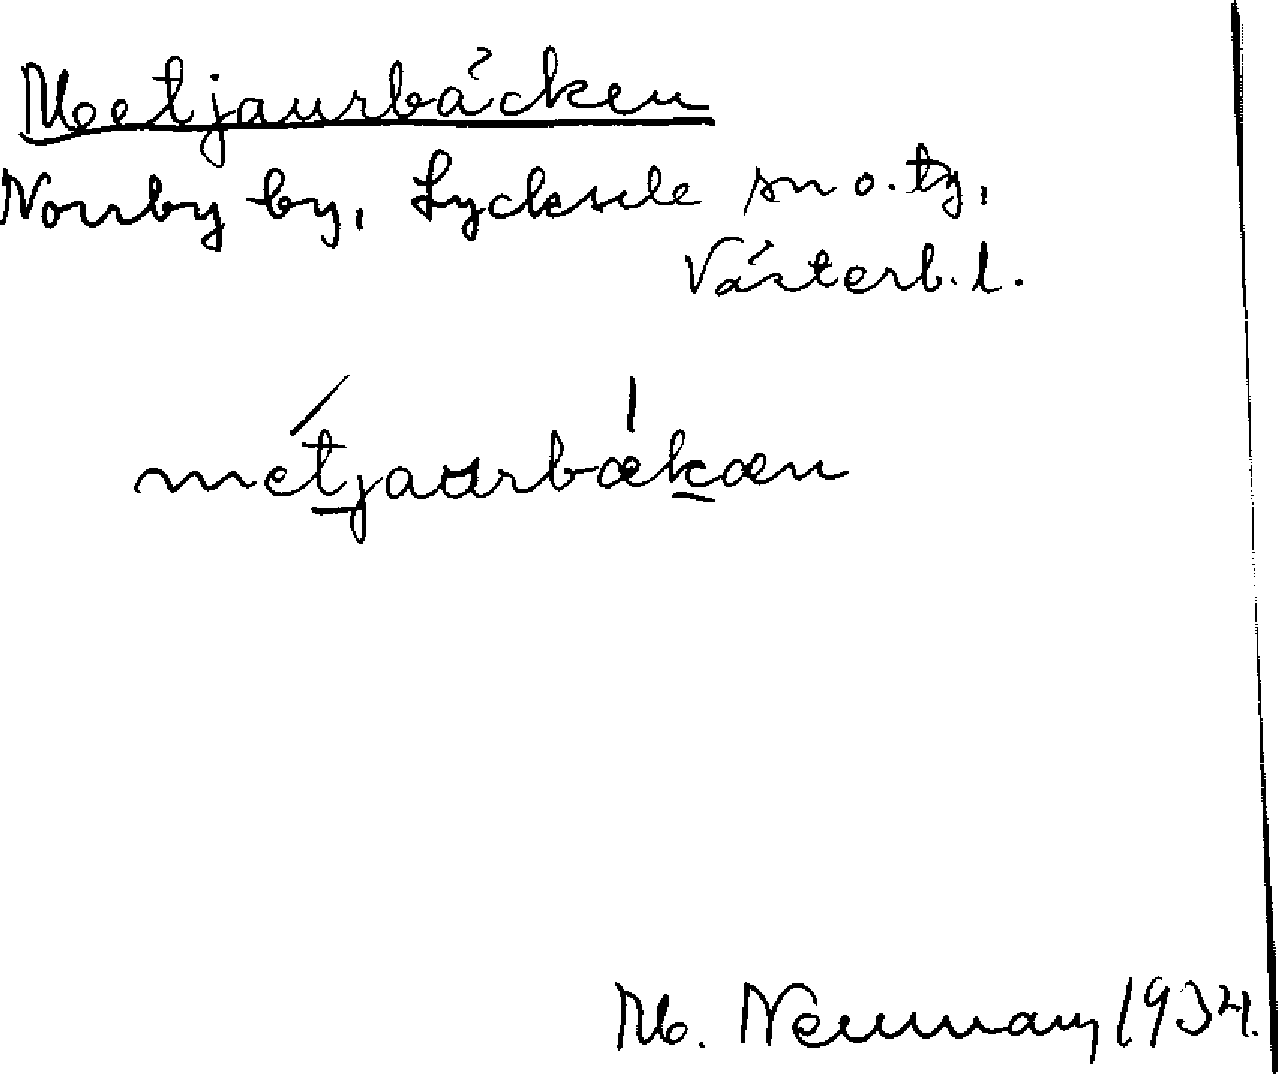 Metjaurbäcken
Norrby by, Lycksele sn o. tg,
Västerb. l.
metjaurbækæn
M. Neuman, 1934.